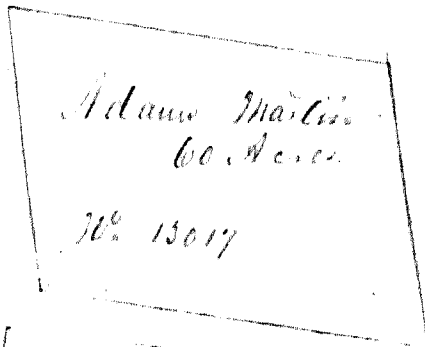 Adam Martin
60 Acres
No. 13017